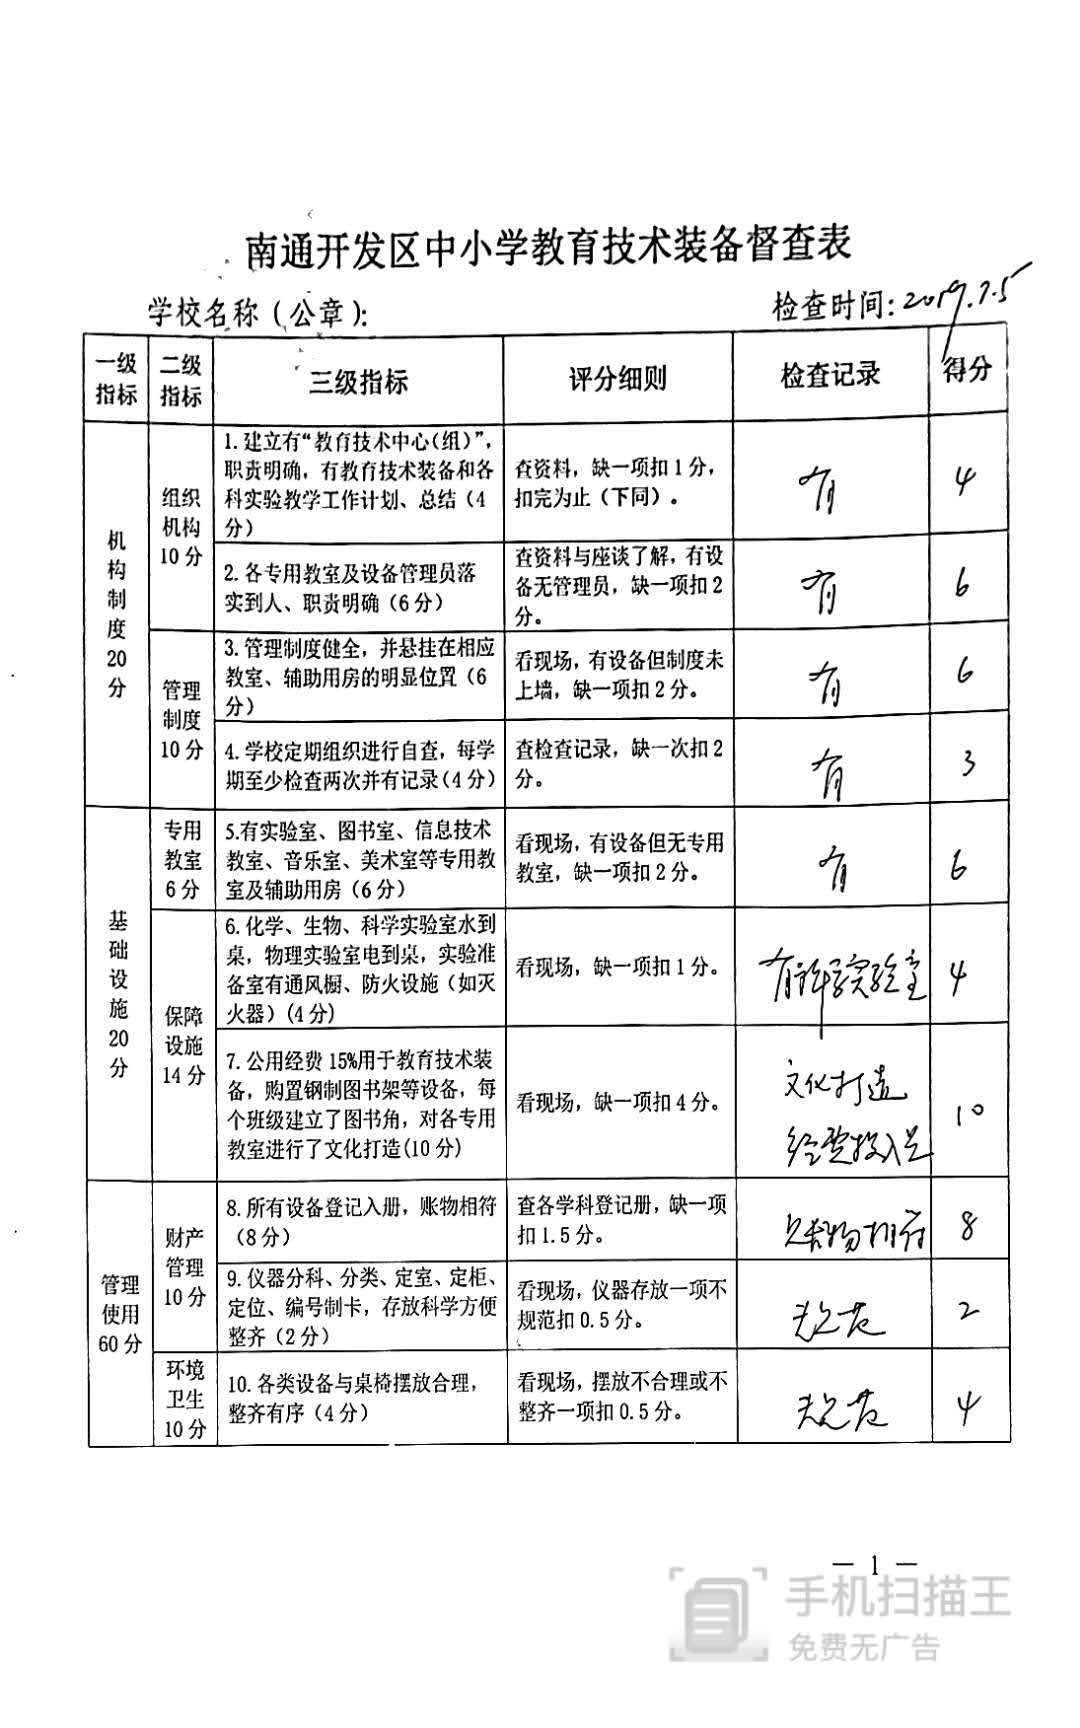 南通开发区中小学教育技术装备督查表
学校名称（公章）：
检查时间：2019.7.5
一级
指标
二级
指标
三级指标
评分细则
检查记录
得分
机
构
制
度
20
分
组织
机构
10分
1.建立有“教育技术中心（组）”，
职责明确，有教育技术装备和各
科实验教学工作计划、总结（4
分）
查资料，缺一项扣1分，
扣完为止（下同）。
有
4
2.各专用教室及设备管理员落
实到人、职责明确（6分）
查资料与座谈了解，有设
备无管理员，缺一项扣2
分。
有
6
管理
制度
10分
3.管理制度健全，并悬挂在相应
教室、辅助用房的明显位置（6
分）
看现场，有设备但制度未
上墙，缺一项扣2分。
有
6
4.学校定期组织进行自查，每学
期至少检查两次并有记录（4分）
查检查记录，缺一次扣2
分。
有
3
基
础
设
施
20
分
专用
教室
6分
5.有实验室、图书室、信息技术
教室、音乐室、美术室等专用教
室及辅助用房（6分）
看现场，有设备但无专用
教室，缺一项扣2分。
有
6
保障
设施
14分
6.化学、生物、科学实验室水到
桌，物理实验室电到桌，实验准
备室有通风橱、防火设施（如灭
火器）(4分)
看现场，缺一项扣1分。
有科学实验室
4
7.公用经费15%用于教育技术装
备，购置钢制图书架等设备，每
个班级建立了图书角，对各专用
教室进行了文化打造(10分)
看现场，缺一项扣4分。
文化打造
经费投入足
10
管理
使用
60分
财产
管理
10分
8.所有设备登记入册，账物相符
（8分）
查各学科登记册，缺一项
扣1.5分。
账物相符
8
9.仪器分科、分类、定室、定柜、
定位、编号制卡，存放科学方便
整齐（2分）
看现场，仪器存放一项不
规范扣0.5分。
规范
2
环境
卫生
10分
10.各类设备与桌椅摆放合理，
整齐有序（4分）
看现场，摆放不合理或不
整齐一项扣0.5分。
规范
4
— 1 —
手机扫描王
免费无广告